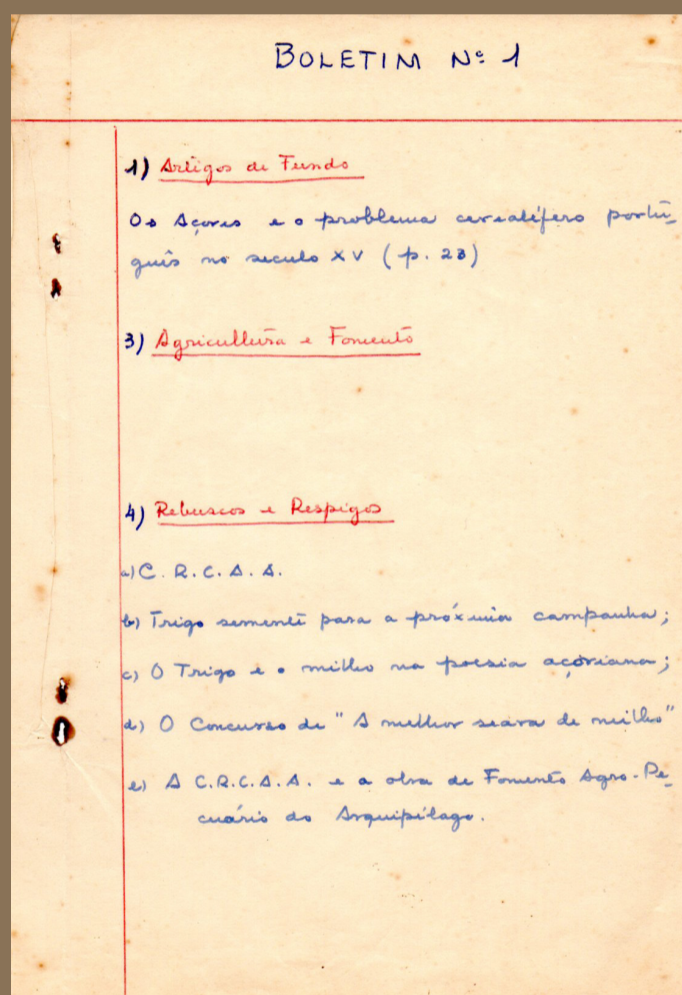 BOLETIM Nº 1
1) Artigos de Fundo
Os Açores e o problema cerealífero portu-
guês no seculo XV (p. 23)
3) Agricultura e Fomento
4) Rebuscos e Respigos
a) C. R. C. A. A.
b) Trigo semente para a próxima campanha;
c) O Trigo e o milho na poesia açoriana;
d) O Concurso de "A melhor seara de milho"
e) A C.R.C.A.A. e a obra de Fomento Agro-Pe-
cuário do Arquipélago.